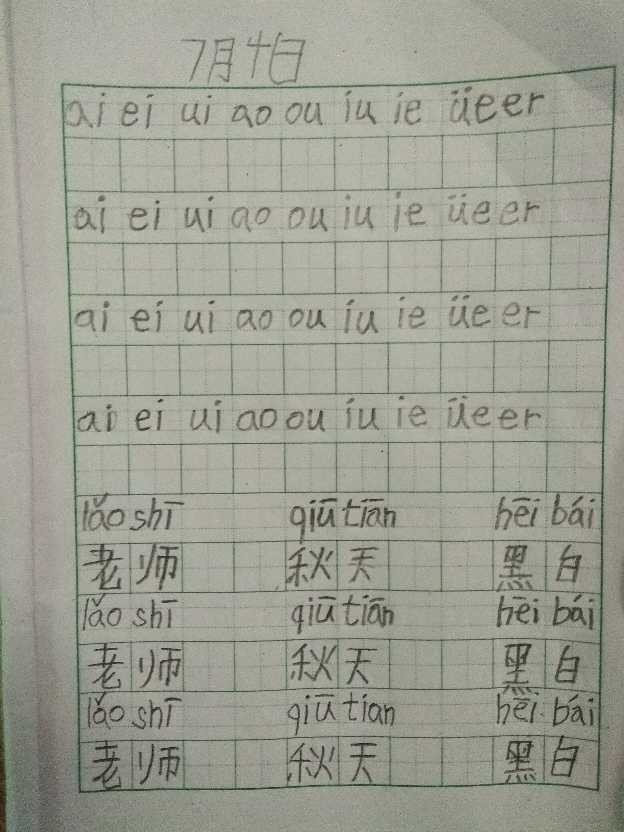 7月十日
ai ei ui ao ou iu ie üe er
ai ei ui ao ou iu ie üe er
ai ei ui ao ou iu ie üe er
ai ei ui ao ou iu ie üe er
lǎo shī qiū tiān hēi bái
老师 秋天 黑白
lǎo shī qiū tiān hēi bái
老师 秋天 黑白
lǎo shī qiū tian hēi bái
老师 秋天 黑白